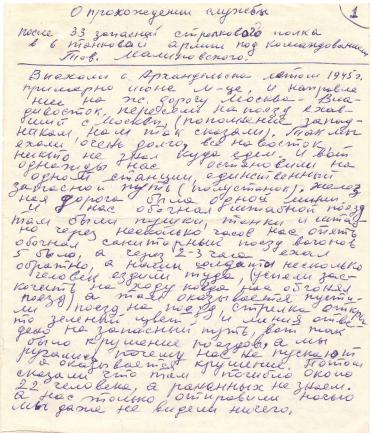 О прохождении службы
1
после 33 запасной стрелкового полка
в 6 танковой армии под командованием
Тов. Малиновского.
Выехали с. Архангельска летом 1945 г.
примерно июне м-це, и направле
ние на ж. дорогу Москва - Вла-
дивосток, на поезд ехав
ший с Москвы (пополнение запад-
никам нам так сказали). Так мы
ехали очень долго, все на восток
никто не знал куда едем. И вот
однажды нас остановили на
одной станции, единственный
запасной путь (полустанок). желез
ная дорога была одной линии
и нас обогнал поезд
там были пушки, танки и
но через несколько часов нас опять
обогнал санитарный поезд вагонов
5 было, а через 2-3 часа ехал
обратно, а наши солдаты несколько
человек ездили туда (успели зас-
кочить на ходу когда нас обгонял
поезд) а там оказывается пусти-
ли поезд на поезд стрелка откры
то зеленый цвет и линия отве
дена на запасный путь, вот так
было крушение поездов, а мы
ругались почему нас не пускают
а оказывается крушение. Потом
сказали что там погибло около
22 человека, а раненных не знаем.
а нас только отправили ночью
мы даже не видели ничего.